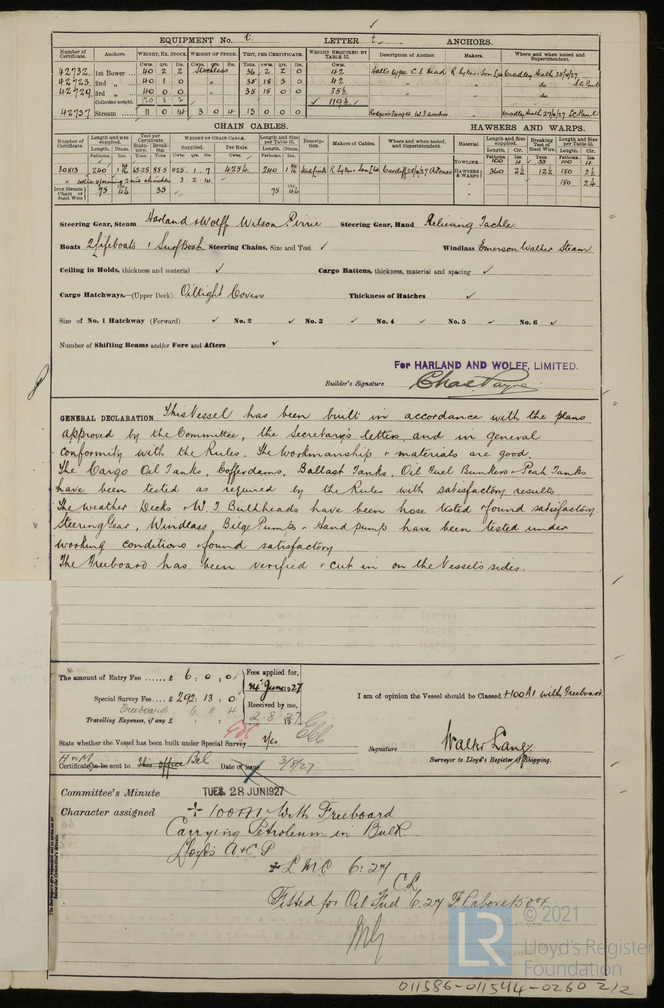 EQUIPMENT No. t. LETTER t. ANCHORS.
Number of Certificate. Anchors. WEIGHT, EX. STOCK. WEIGHT OF STOCK. TEST, PER CERTIFICATE. WEIGHT REQUIRED BY TABLE 31. Description of Anchor. Makers. Where and when tested and Superintendent.
Cwts. qrs. lbs. Cwts. qrs. lbs. Tons. cwts. qrs. lbs. Cwts.
42732. 1st Bower 40 2 2 Stockless 36 2 2 0 42 Halls type C.S. Head
42723. 2nd „ 40 1 0 „ 35 18 3 0 42
42729. 3rd „ 40 0 0 „ 35 15 0 0 35½
Collective weight. 120 3 2 119½
42737 Stream 11 0 14 3 0 4 13 0 0 0
CHAIN CABLES. HAWSERS AND WARPS.
Number of Certificate. Length and size supplied. Test per Certificate. WEIGHT OF CHAIN CABLE. Length and size per Table 31. Description. Makers of Cables. Where and when tested, and Superintendent. Material Length and size supplied. Breaking Test of Steel Wire. Length and size per Table 31.
Fathoms. Diam. Statutory. Breaking. Supplied. Per Rule. Length. Diam. Length. Cir. Length. Cir.
TOWLINE 100 33 100
30813 240 425.1.7 425¼ 240 HAWSERS & WARPS 360 2½ 12½ 180 2½
3 2 14 180 2¼
Iron Stream Chain or Steel Wire 75 75
Steering Gear, Steam Harland & Wolff Wilson Pirrie Steering Gear, Hand Relieving Tackle
Boats 2 Lifeboats 1 Surf Boat Steering Chains, Size and Test ✓ Windlass Emerson Walker Steam
Ceiling in Holds, thickness and material ✓ Cargo Battens, thickness, material and spacing ✓
Cargo Hatchways.—(Upper Deck) Oiltight Covers Thickness of Hatches ✓
Size of No. 1 Hatchway (Forward) ✓ No. 2 ✓ No. 3 ✓ No. 4 ✓ No. 5 ✓ No. 6 ✓
Number of Shifting Beams and/or Fore and Afters ✓
For HARLAND AND WOLFF, LIMITED.
Builder's Signature Chas Payne
GENERAL DECLARATION This Vessel has been built in accordance with the plans
approved by the Committee, the Secretary's letters, and in general
conformity with the Rules. The workmanship & materials are good.
The Cargo Oil Tanks, Cofferdams, Ballast Tanks, Oil Fuel Bunkers & Peak Tanks
have been tested as required by the Rules with satisfactory results
The weather Decks & W.T. Bulkheads have been hose tested & found satisfactory.
Steering Gear, Windlass, Bilge Pumps & Hand pump have been tested under
working conditions & found satisfactory
The Freeboard has been verified & cut in on the Vessel's sides.
The amount of Entry Fee ...... £ 6 : 0 : 0
Fees applied for,
14 June 1927
Special Survey Fee.... £ 292 : 13 : 0
Received by me,
Freeboard 6 8 4
Travelling Expenses, if any £ : :
2.8.1927
I am of opinion the Vessel should be Classed +100A1 with Freeboard
State whether the Vessel has been built under Special Survey Yes
Signature Walter Lang
Surveyor to Lloyd's Register of Shipping.
H & M
Certificate to be sent to This office Bel Date of issue 3/8/27
Committee's Minute TUES. 28 JUN 1927
Character assigned +100A1 With Freeboard
Carrying Petroleum in Bulk
Lloyd's A & C P
+ L.M.C 6.27
C.L.
Fitted for Oil Fuel 6.27 F.P. above 150°F
LR
© 2021
Lloyd's Register
Foundation
011586-011544-0260 2/2